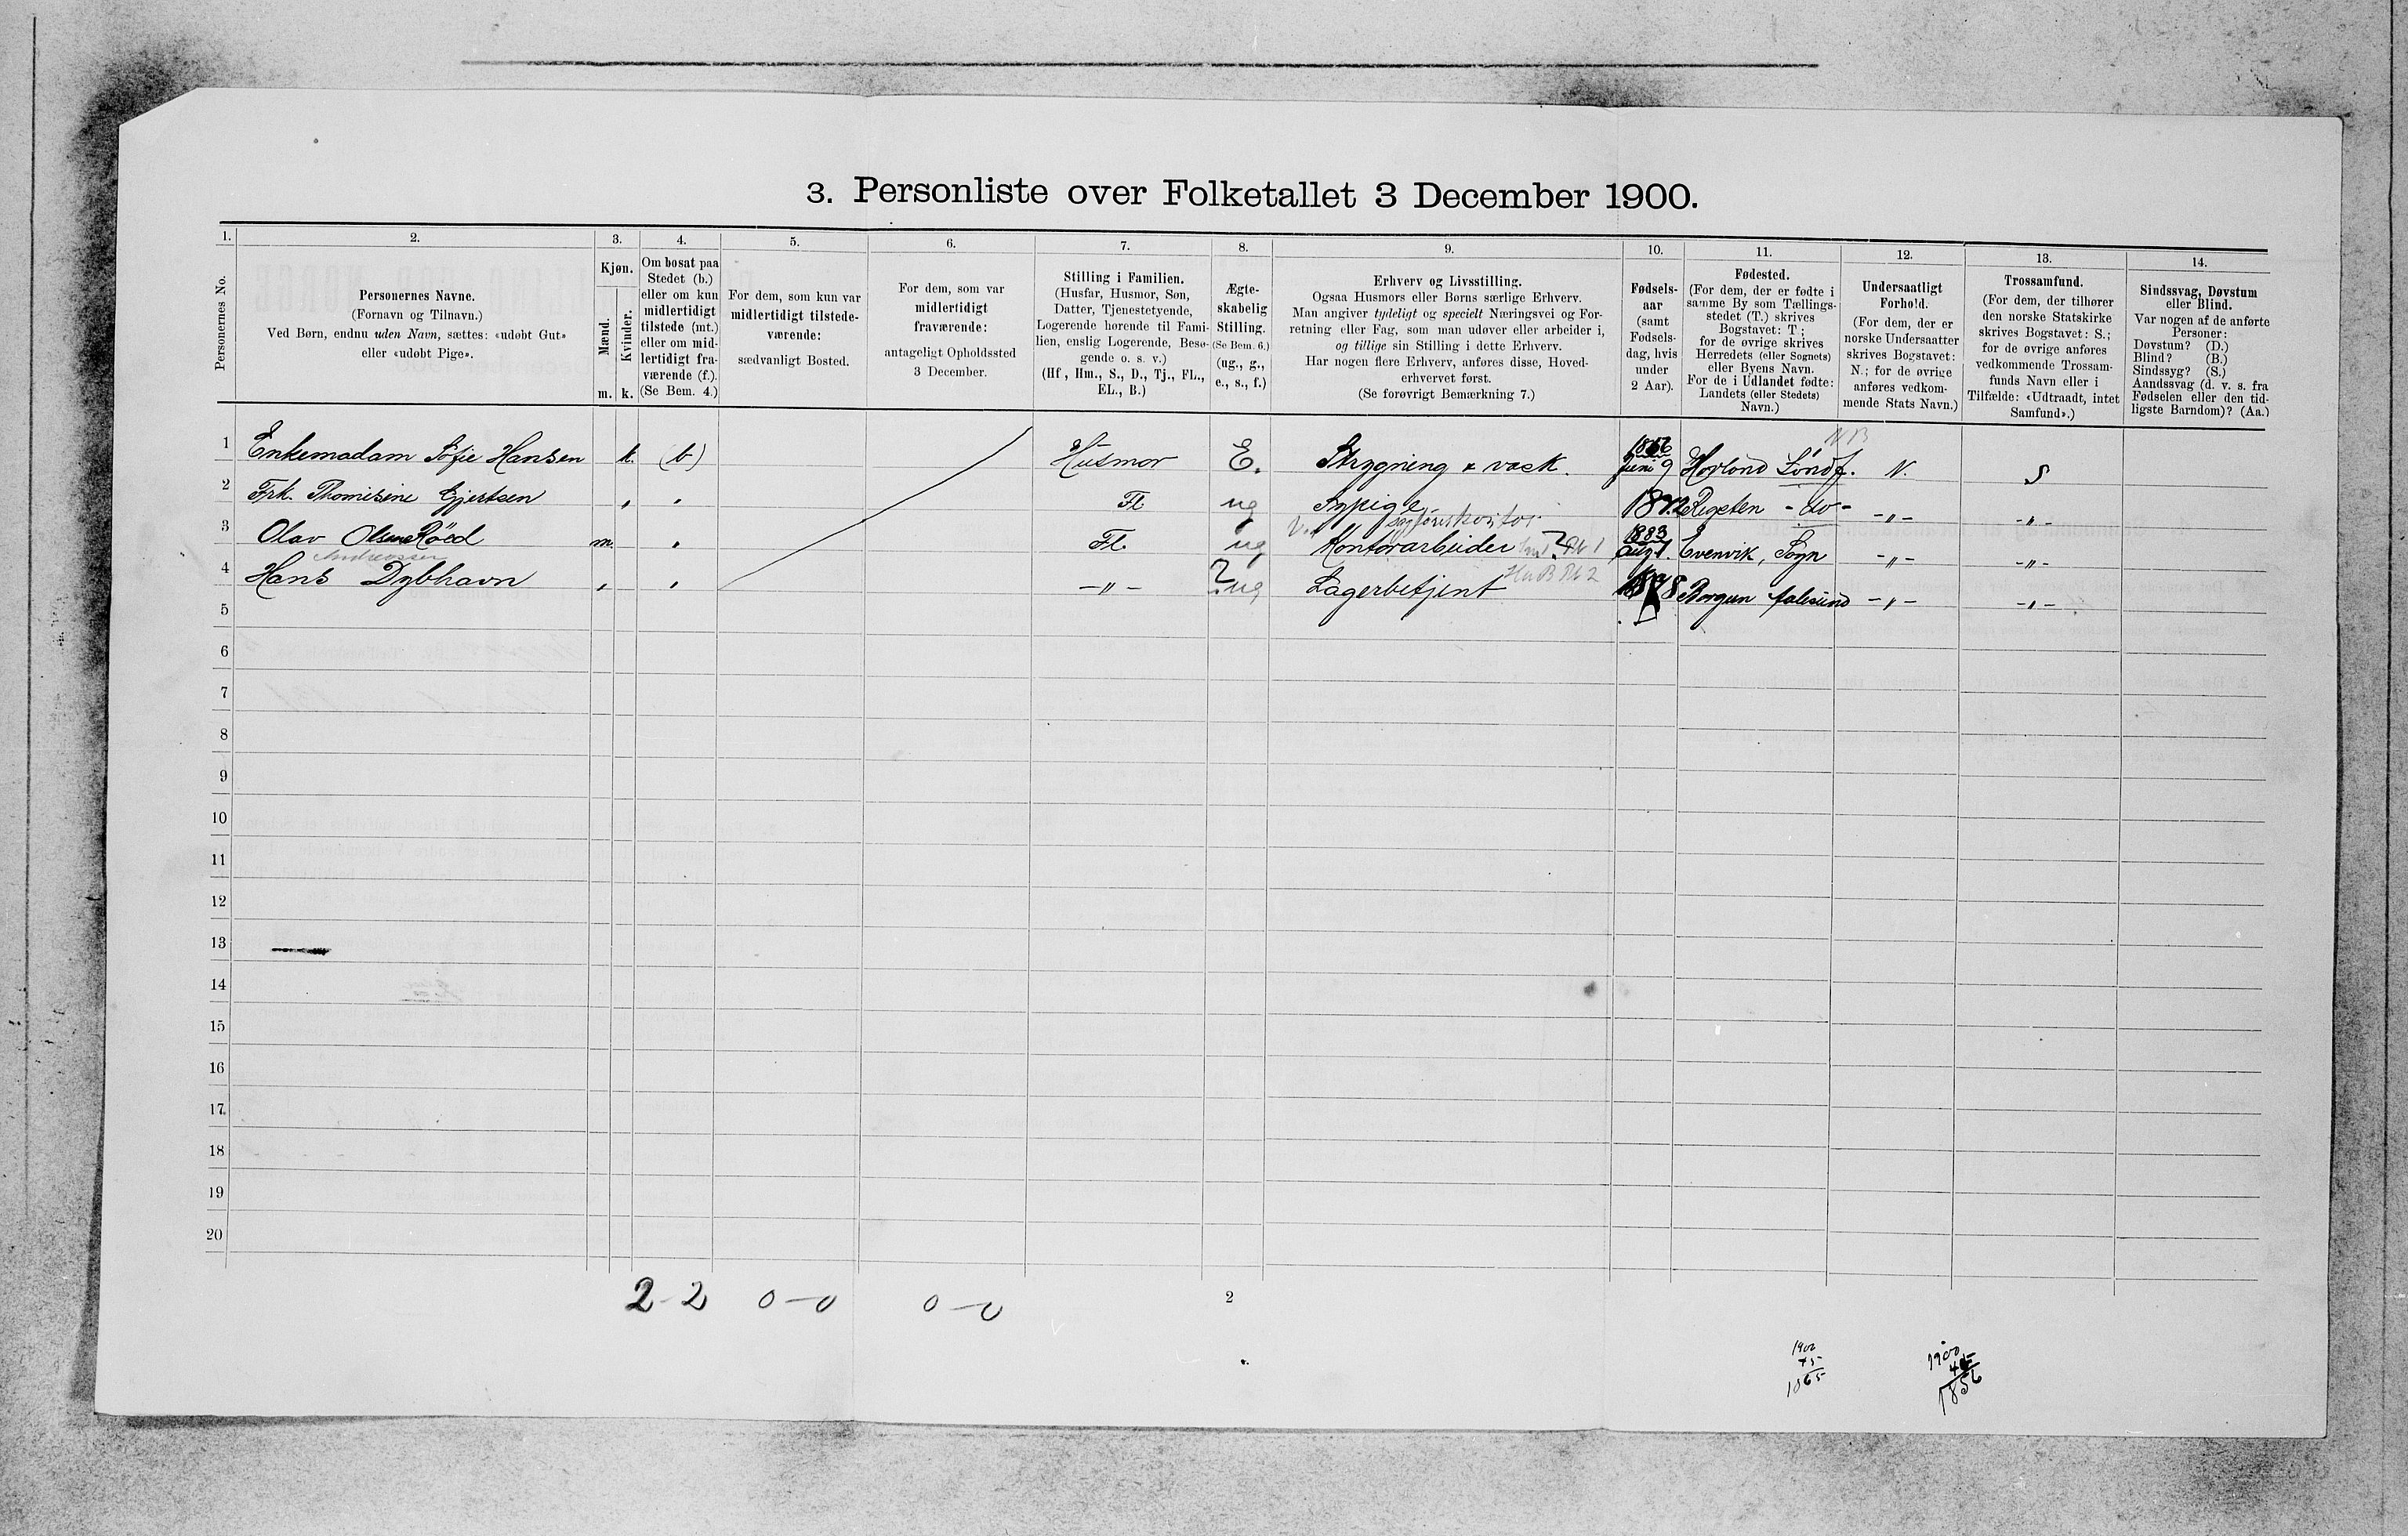 3. Personliste over Folketallet 3 December 1900.
1. 2. 3. 4. 5. 6. 7. 8. 9. 10. 11. 12. 13. 14.
Personernes No.
Personernes Navne.
(Fornavn og Tilnavn.)
Ved Børn, endnu uden Navn, sættes: «udøbt Gut»
eller «udøbt Pige».
Kjøn.
Mænd. Kvinder.
m. k.
Om bosat paa
Stedet (b.)
eller om kun
midlertidigt
tilstede (mt.)
eller om mid-
lertidigt fra-
værende (f.).
(Se Bem. 4.)
For dem, som kun var
midlertidigt tilstede-
værende:
sædvanligt Bosted.
For dem, som var
midlertidigt
fraværende:
antageligt Opholdssted
3 December.
Stilling i Familien.
(Husfar, Husmor, Søn,
Datter, Tjenestetyende,
Logerende hørende til Fami-
lien, enslig Logerende, Besø-
gende o. s. v.)
(Hf, Hm., S., D., Tj., FL.,
EL., B.)
Ægte-
skabelig
Stilling.
(Se Bem. 6.)
(ug., g.,
e., s., f.)
Erhverv og Livsstilling.
Ogsaa Husmors eller Børns særlige Erhverv.
Man angiver tydeligt og specielt Næringsvei og For-
retning eller Fag, som man udøver eller arbeider i,
og tillige sin Stilling i dette Erhverv.
Har nogen flere Erhverv, anføres disse, Hoved-
erhvervet først.
(Se forøvrigt Bemærkning 7.)
Fødsels-
aar
(samt
Fødsels-
dag, hvis
under
2 Aar).
Fødested.
(For dem, der er fødte i
samme By som Tællings-
stedet (T.) skrives
Bogstavet: T;
for de øvrige skrives
Herredets (eller Sognets)
eller Byens Navn.
For de i Udlandet fødte:
Landets (eller Stedets)
Navn.)
Undersaatligt
Forhold.
(For dem, der er
norske Undersaatter
skrives Bogstavet:
N.; for de øvrige
anføres vedkom-
mende Stats Navn.)
Trossamfund.
(For dem, der tilhører
den norske Statskirke
skrives Bogstavet: S.;
for de øvrige anføres
vedkommende Trossam-
funds Navn eller i
Tilfælde: «Udtraadt, intet
Samfund».)
Sindssvag, Døvstum
eller Blind.
Var nogen af de anførte
Personer:
Døvstum? (D.)
Blind? (B.)
Sindssyg? (S.)
Aandssvag (d. v. s. fra
Fødselen eller den tid-
ligste Barndom)? (Aa.)
1 Enkemadam Sofie Hansen k. (b) Husmor E. Strygning & vask. Juni 9 Søndf. N. S
2 Frk. Thomisine Gjertsen " " Fl ug Sypige 1872 - do - -"- -"-
3 Olav Olsen Röed m. " Fl. ug Kontorarbeider 1883 Aug 1. Evenvik, Sogn -"- -"-
Andreassen
4 Hans Dybhavn " " -"- ? ug Lagerbetjent Borgun Aalesund -"- -"-
5
6
7
8
9
10
11
12
13
14
15
16
17
18
19
20
2 - 2 0 - 0 0 - 0
2
1900
45
1865
1900
1856